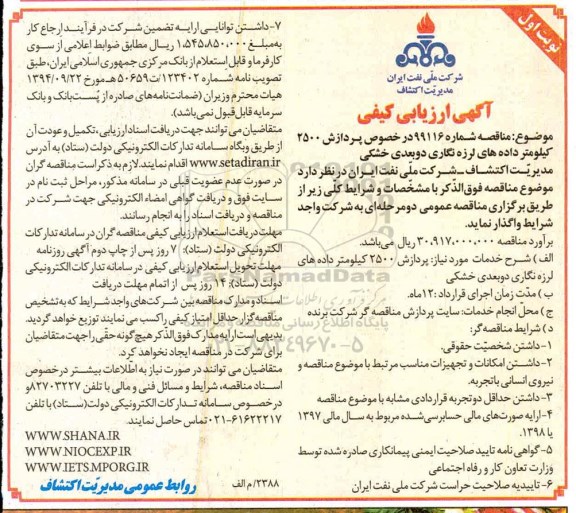 نوبت اول
شرکت ملّی نفت ایران
مدیریّت اکتشاف
آگهی ارزیابی کیفی
موضوع: مناقصه شماره ۹۹۱۱۶ در خصوص پردازش ۲۵۰۰
کیلومتر داده های لرزه نگاری دوبعدی خشکی
مدیریّت اکتشاف - شرکت ملّی نفت ایران در نظر دارد
موضوع مناقصه فوق الذکر با مشخّصات و شرایط کلّی زیر از
طریق برگزاری مناقصه عمومی دو مرحله ای به شرکت واجد
شرایط واگذار نماید.
برآورد مناقصه ۳۰،۹۱۷،۰۰۰،۰۰۰ ریال می‌باشد.
الف ) شرح خدمات مورد نیاز: پردازش ۲۵۰۰ کیلومتر داده های
لرزه نگاری دوبعدی خشکی
ب ) مدّت زمان اجرای قرارداد: ۱۲ماه.
ج ) محلّ انجام خدمات: سایت پردازش مناقصه گر برنده
د ) شرایط مناقصه گر:
۱-داشتن شخصیّت حقوقی.
۲-داشتن امکانات و تجهیزات مناسب مرتبط با موضوع مناقصه و
نیروی انسانی باتجربه.
۳-داشتن حداقل دو تجربه قراردادی مشابه با موضوع مناقصه
۴-ارایه صورت‌های مالی حسابرسی‌شده مربوط به سال مالی ۱۳۹۷
یا ۱۳۹۸.
۵-گواهی نامه تایید صلاحیت ایمنی پیمانکاری صادره شده توسط
وزارت تعاون کار و رفاه اجتماعی
۶-تاییدیه صلاحیت حراست شرکت ملی نفت ایران
۷-داشتن توانایی ارایه تضمین شرکت در فرآیند ارجاع کار
به مبلغ ۱،۵۴۵،۸۵۰،۰۰۰ ریال مطابق ضوابط اعلامی از سوی
کارفرما و قابل استعلام از بانک مرکزی جمهوری اسلامی ایران، طبق
تصویب نامه شماره ۱۲۳۴۰۲/ت۵۰۶۵۹هـ مورخ ۱۳۹۴/۰۹/۲۲
هیات محترم وزیران (ضمانت‌نامه‌های صادره از پست‌بانک و بانک
سرمایه قابل قبول نمی‌باشد).
متقاضیان می توانند جهت دریافت اسناد ارزیابی، تکمیل و عودت آن
از طریق وبگاه سامانه تدارکات الکترونیکی دولت (ستاد) به آدرس
www.setadiran.ir اقدام نمایند. لازم به ذکر است مناقصه گران
در صورت عدم عضویت قبلی در سامانه مذکور، مراحل ثبت نام در
سایت فوق و دریافت گواهی امضاء الکترونیکی جهت شرکت در
مناقصه و دریافت اسناد را به انجام رسانند.
مهلت دریافت استعلام ارزیابی کیفی مناقصه گران در سامانه تدارکات
الکترونیکی دولت (ستاد): ۷ روز پس از چاپ دوم آگهی روزنامه
مهلت تحویل استعلام ارزیابی کیفی در سامانه تدارکات الکترونیکی
دولت (ستاد): ۱۴ روز پس از اتمام مهلت دریافت
اسناد و مدارک مناقصه بین شرکت‌های واجد شرایط که به تشخیص
مناقصه‌گزار حداقل امتیاز کیفی را کسب می نمایند توزیع خواهد گردید.
بدیهی است ارایه مدارک فوق الذکر هیچ گونه حقّی را جهت متقاضیان
برای شرکت در مناقصه ایجاد نخواهد کرد.
متقاضیان می توانند در صورت نیاز به اطّلاعات بیشتر در خصوص
اسناد مناقصه، شرایط و مسائل فنی و مالی با تلفن ۸۲۷۰۳۲۲۷و
در خصوص سامانه تدارکات الکترونیکی دولت (ستاد) با تلفن
۰۲۱-۶۱۶۲۲۲۱۷ تماس حاصل نمایند.
WWW.SHANA.IR
WWW.NIOCEXP.IR
WWW.IETS.MPORG.IR
۲۳۸۸/م الف
روابط عمومی مدیریّت اکتشاف
ParsNamadData